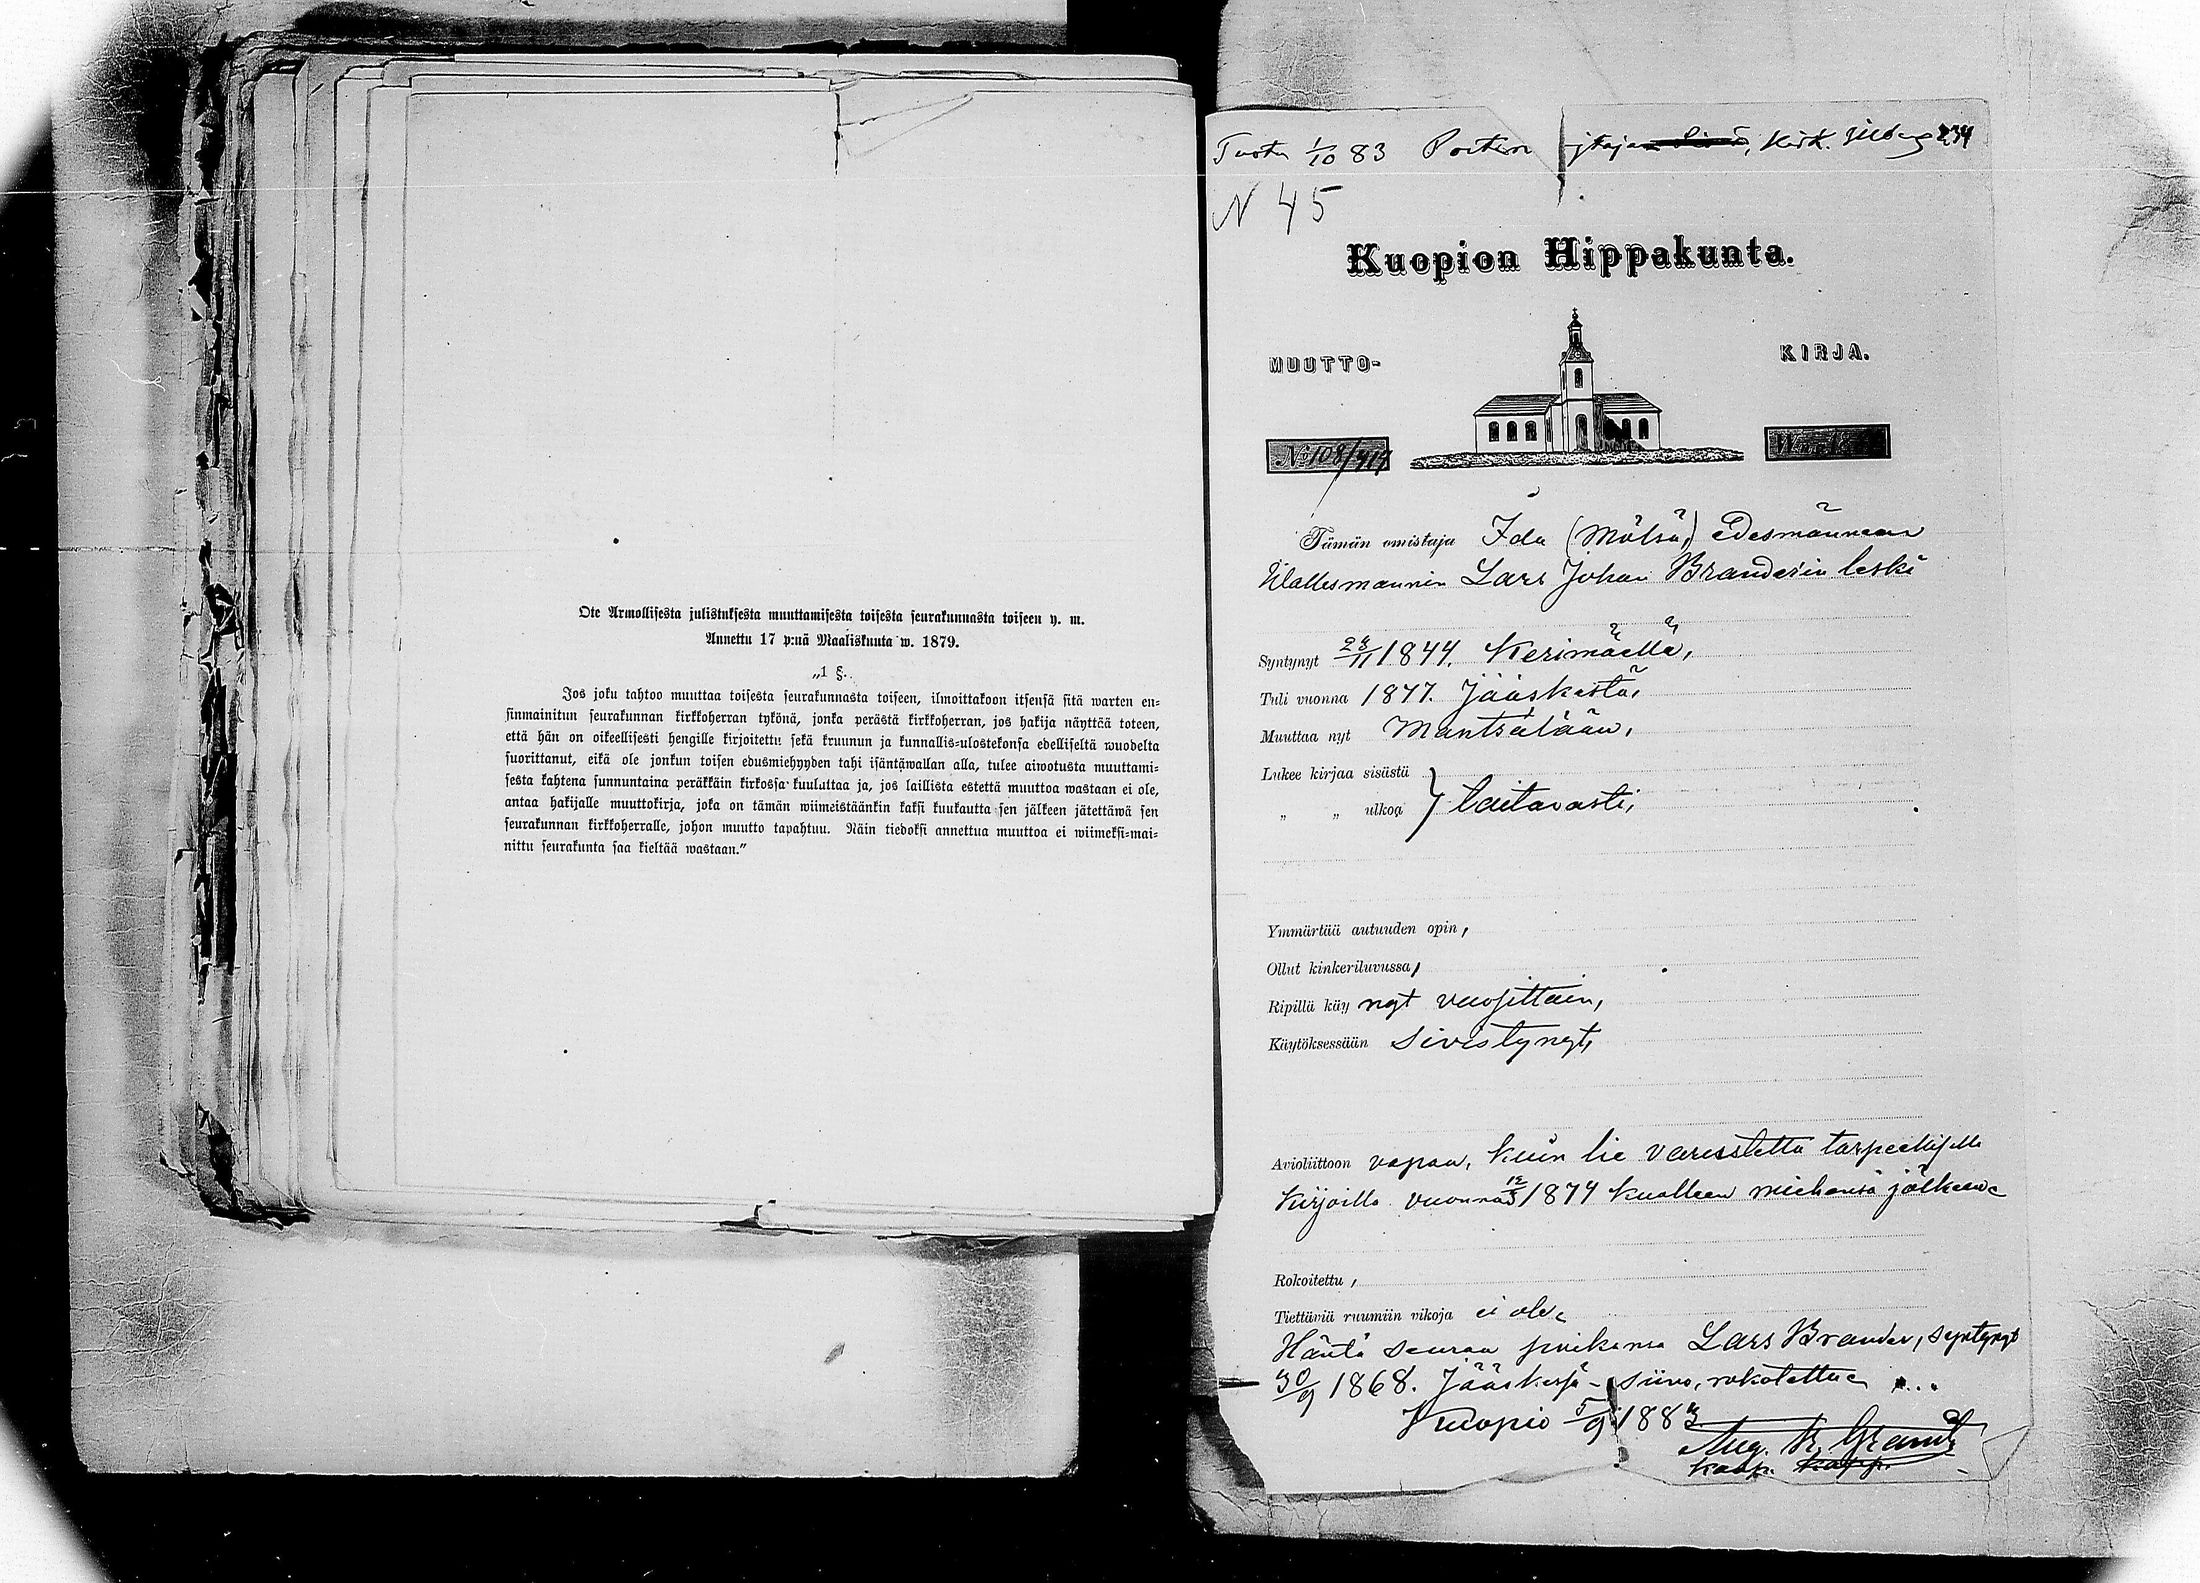 Ote Armollisesta julistuksesta muuttamisesta toisesta seurakunnasta toiseen y. m.
Annettu 17 p:nä Maaliskuuta w. 1879.
„1 §.
Jos joku tahtoo muuttaa toisesta seurakunnasta toiseen, ilmoittakoon itsensä sitä warten en=
sinmainitun seurakunnan kirkkoherran tykönä, jonka perästä kirkkoherran, jos hakija näyttää toteen,
että hän on oikeellisesti hengille kirjoitettu sekä kruunun ja kunnallis=ulostekonsa edelliseltä wuodelta
suorittanut, eikä ole jonkun toisen edusmiehyyden tahi isäntäwallan alla, tulee aiwotusta muuttami=
sesta kahtena sunnuntaina peräkkäin kirkossa kuuluttaa ja, jos laillista estettä muuttoa wastaan ei ole,
antaa hakijalle muuttokirja, joka on tämän wiimeistäänkin kaksi kuukautta sen jälkeen jätettäwä sen
seurakunnan kirkkoherralle, johon muutto tapahtuu. Näin tiedoksi annettua muuttoa ei wiimeksi=mai=
nittu seurakunta saa kieltää wastaan.”
1/10 83 234
N 45
Kuopion Hippakunta.
MUUTTO- KIRJA.
N:o 108/
Tämän omistaja Ida (Mölsä,) Edesmänneen
Wallesmannin Lars Johan Branderin leski
Syntynyt 1844. Kerimäellä,
Tuli vuonna 1877. Jääskestä,
Muuttaa nyt Mäntsälään,
Lukee kirjaa sisästä
„ „ ulkoa } taitavasti,
Ymmärtää autuuden opin,
Ollut kinkeriluvussa,
Ripillä käynyt vuosittain,
Käytöksessään sivistynyt,
Avioliittoon vapaa, kuin lie varustettu tarpeellisilla
kirjoilla vuonna 1874 kuolleen miehensä jälkeen.
Rokoitettu,
Tiettäviä ruumiin vikoja ei ole.
Häntä seuraa poikansa Lars Brander, syntynyt
30/9 1868. Jääskessä - siivo, rokotettu.
Kuopio 5/9 1883
Aug. R. Granit
kapp.